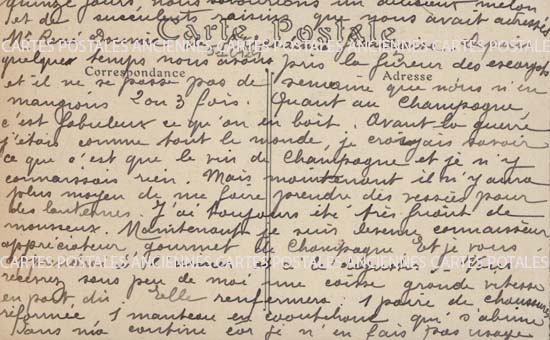 quinze jours, nous savourions un délicieux melon
et de succulents raisins que nous avait adressés
Carte Postale
CARTES POSTALES ANCIENNES CARTES POSTALES ANCIENNES CARTES POSTALES
quelques temps nous avions pris la fureur des escargots
Correspondance
Adresse
et il ne se passe pas de semaine que nous n'en
mangions 2 ou 3 fois. Quant au Champagne,
c'est fabuleux ce qu'on en boit. Avant la guerre
j'étais comme tout le monde, je croyais savoir
ce que c'est que le vin de Champagne et je n'y
connaissais rien. Mais maintenant il n'y aura
plus moyen de me faire prendre des vessies pour
des lanternes. J'ai toujours été très friand de
mousseux. Maintenant je suis devenu connaisseur
appréciateur, gourmet de Champagne. Et je vous
CARTES POSTALES ANCIENNES CARTES POSTALES ANCIENNES CARTES POSTALES
recevrez sous peu de moi une caisse grande vitesse
en port dû. Elle renfermera : 1 paire de chaussures
réformée 1 manteau en caoutchouc qui s'abime
dans ma cantine car je n'en fais pas usage